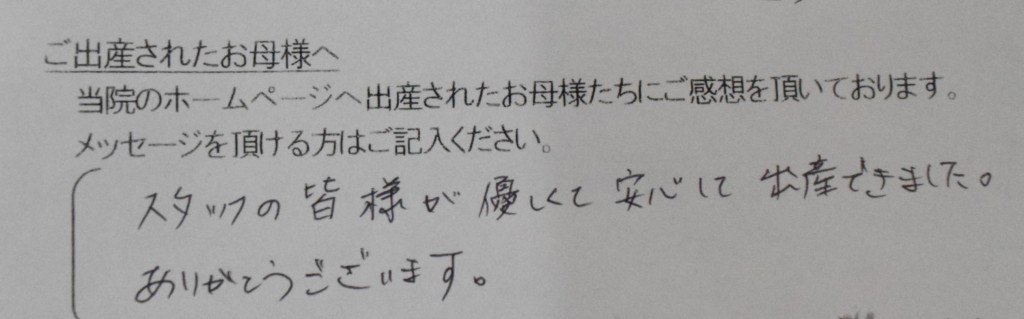 ご出産されたお母様へ
当院のホームページへ出産されたお母様たちにご感想を頂いております。
メッセージを頂ける方はご記入ください。
スタッフの皆様が優しくて安心して出産できました。
ありがとうございます。